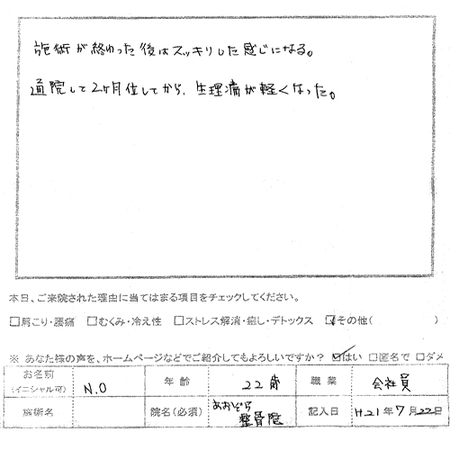 施術が終わった後はスッキリした感じになる。
通院して2ヶ月位してから、生理痛が軽くなった。
本日、ご来院された理由に当てはまる項目をチェックしてください。
□肩こり・腰痛 □むくみ・冷え性 □ストレス解消・癒し・デトックス ☑その他( )
※ あなた様の声を、ホームページなどでご紹介してもよろしいですか? ☑はい □匿名で □ダメ
お名前 (イニシャル可) N.O 年齢 22歳 職業 会社員
施術名 院名(必須) あおぞら整骨院 記入日 H21年7月22日